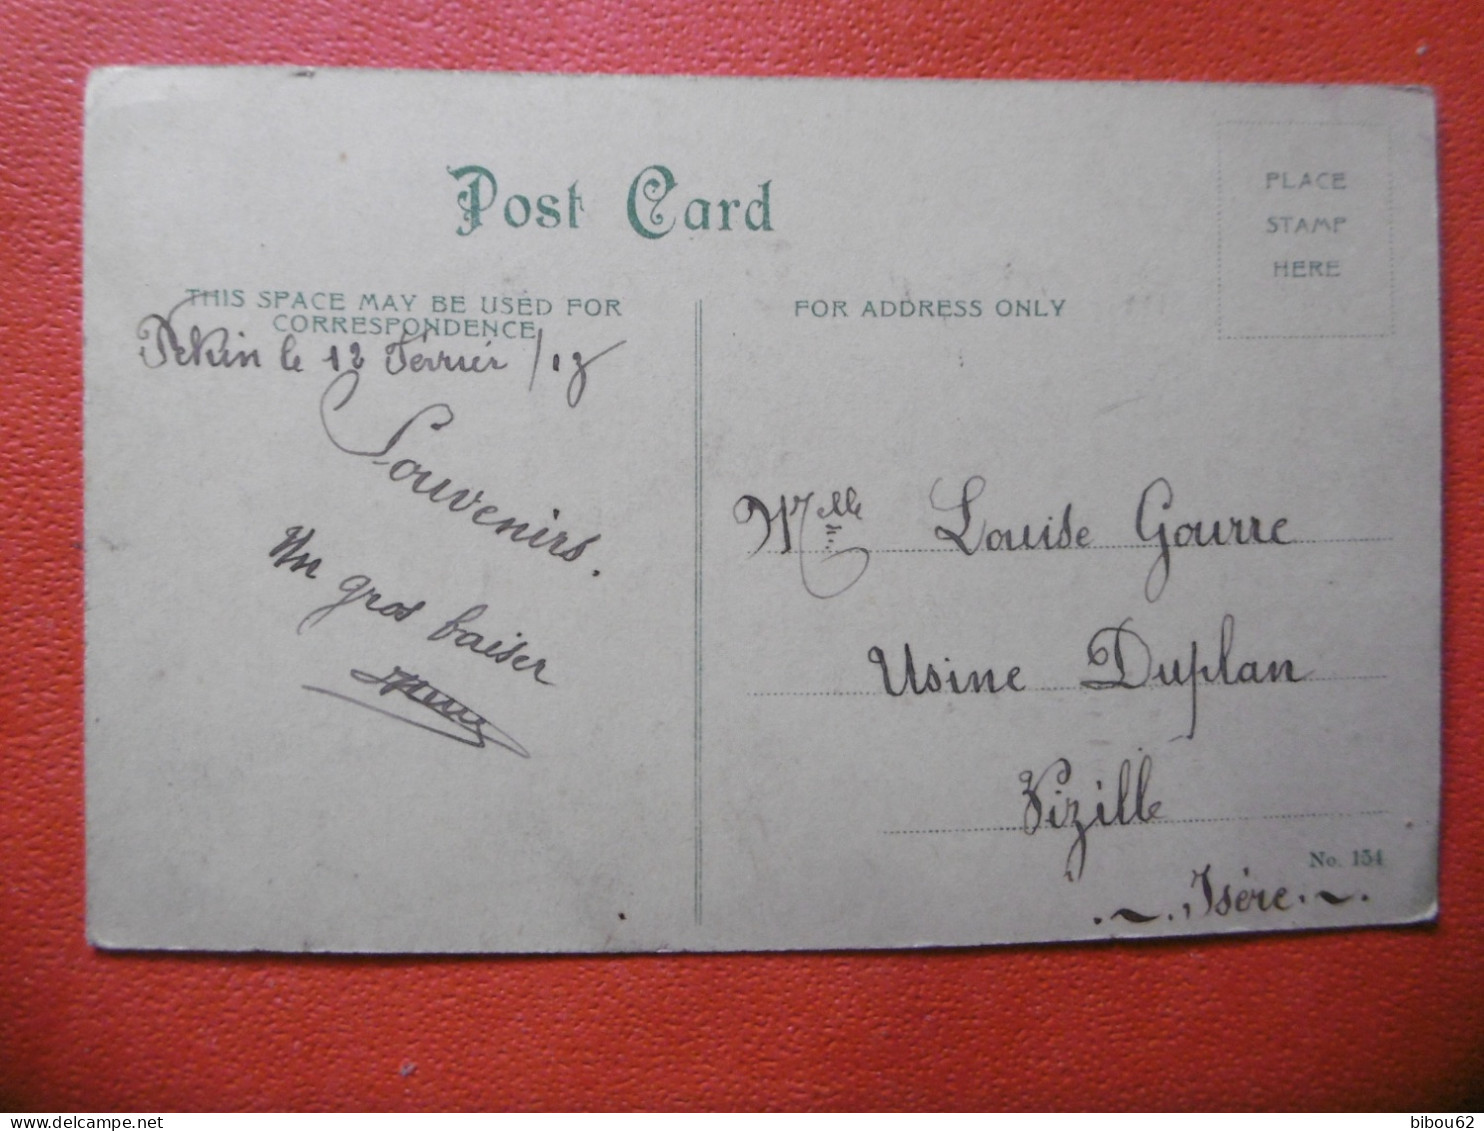 Post Card
PLACE
STAMP
HERE
THIS SPACE MAY BE USED FOR
CORRESPONDENCE
FOR ADDRESS ONLY
Pékin le 12 Février
Souvenirs.
Un gros baiser
Mlle Louise Gourre
Usine Duplan
Vizille
No. 154
Isère
bibou62